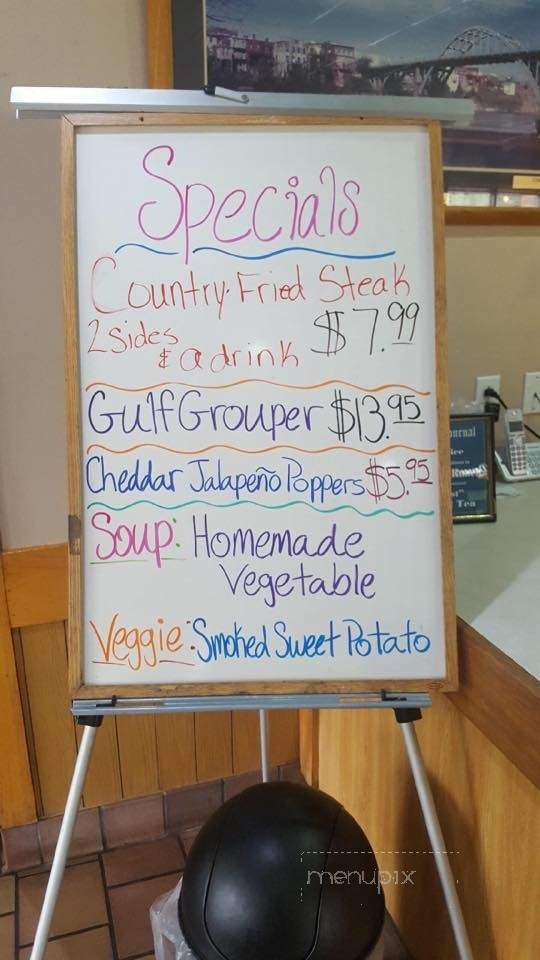 Specials
Country Fried Steak
2 Sides & a drink $7.99
Gulf Grouper $13.95
Cheddar Jalapeño Poppers $5.95
Soup: Homemade
Vegetable
Veggie: Smoked Sweet Potato
Tea
menupix